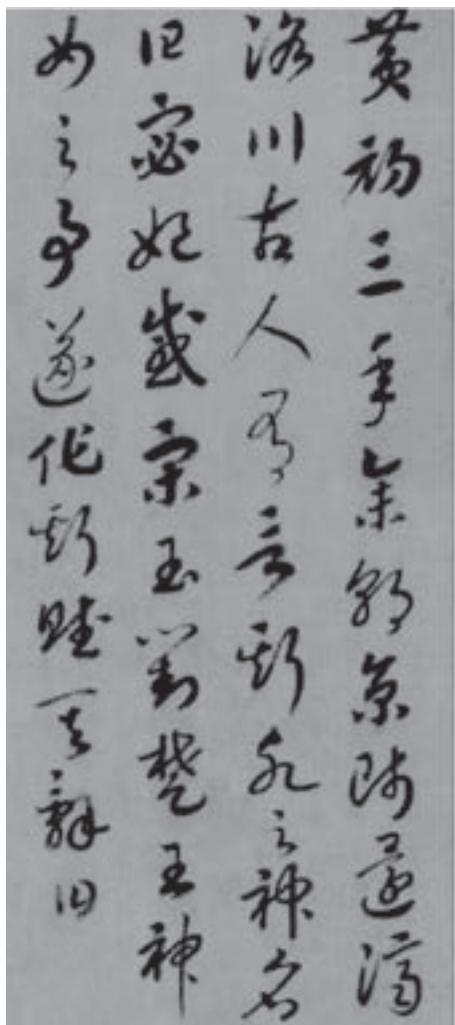 黄初三年余朝京師還濟
洛川古人有言斯水之神名
曰宓妃感宋玉對楚王神
女之事遂作斯賦其辞曰